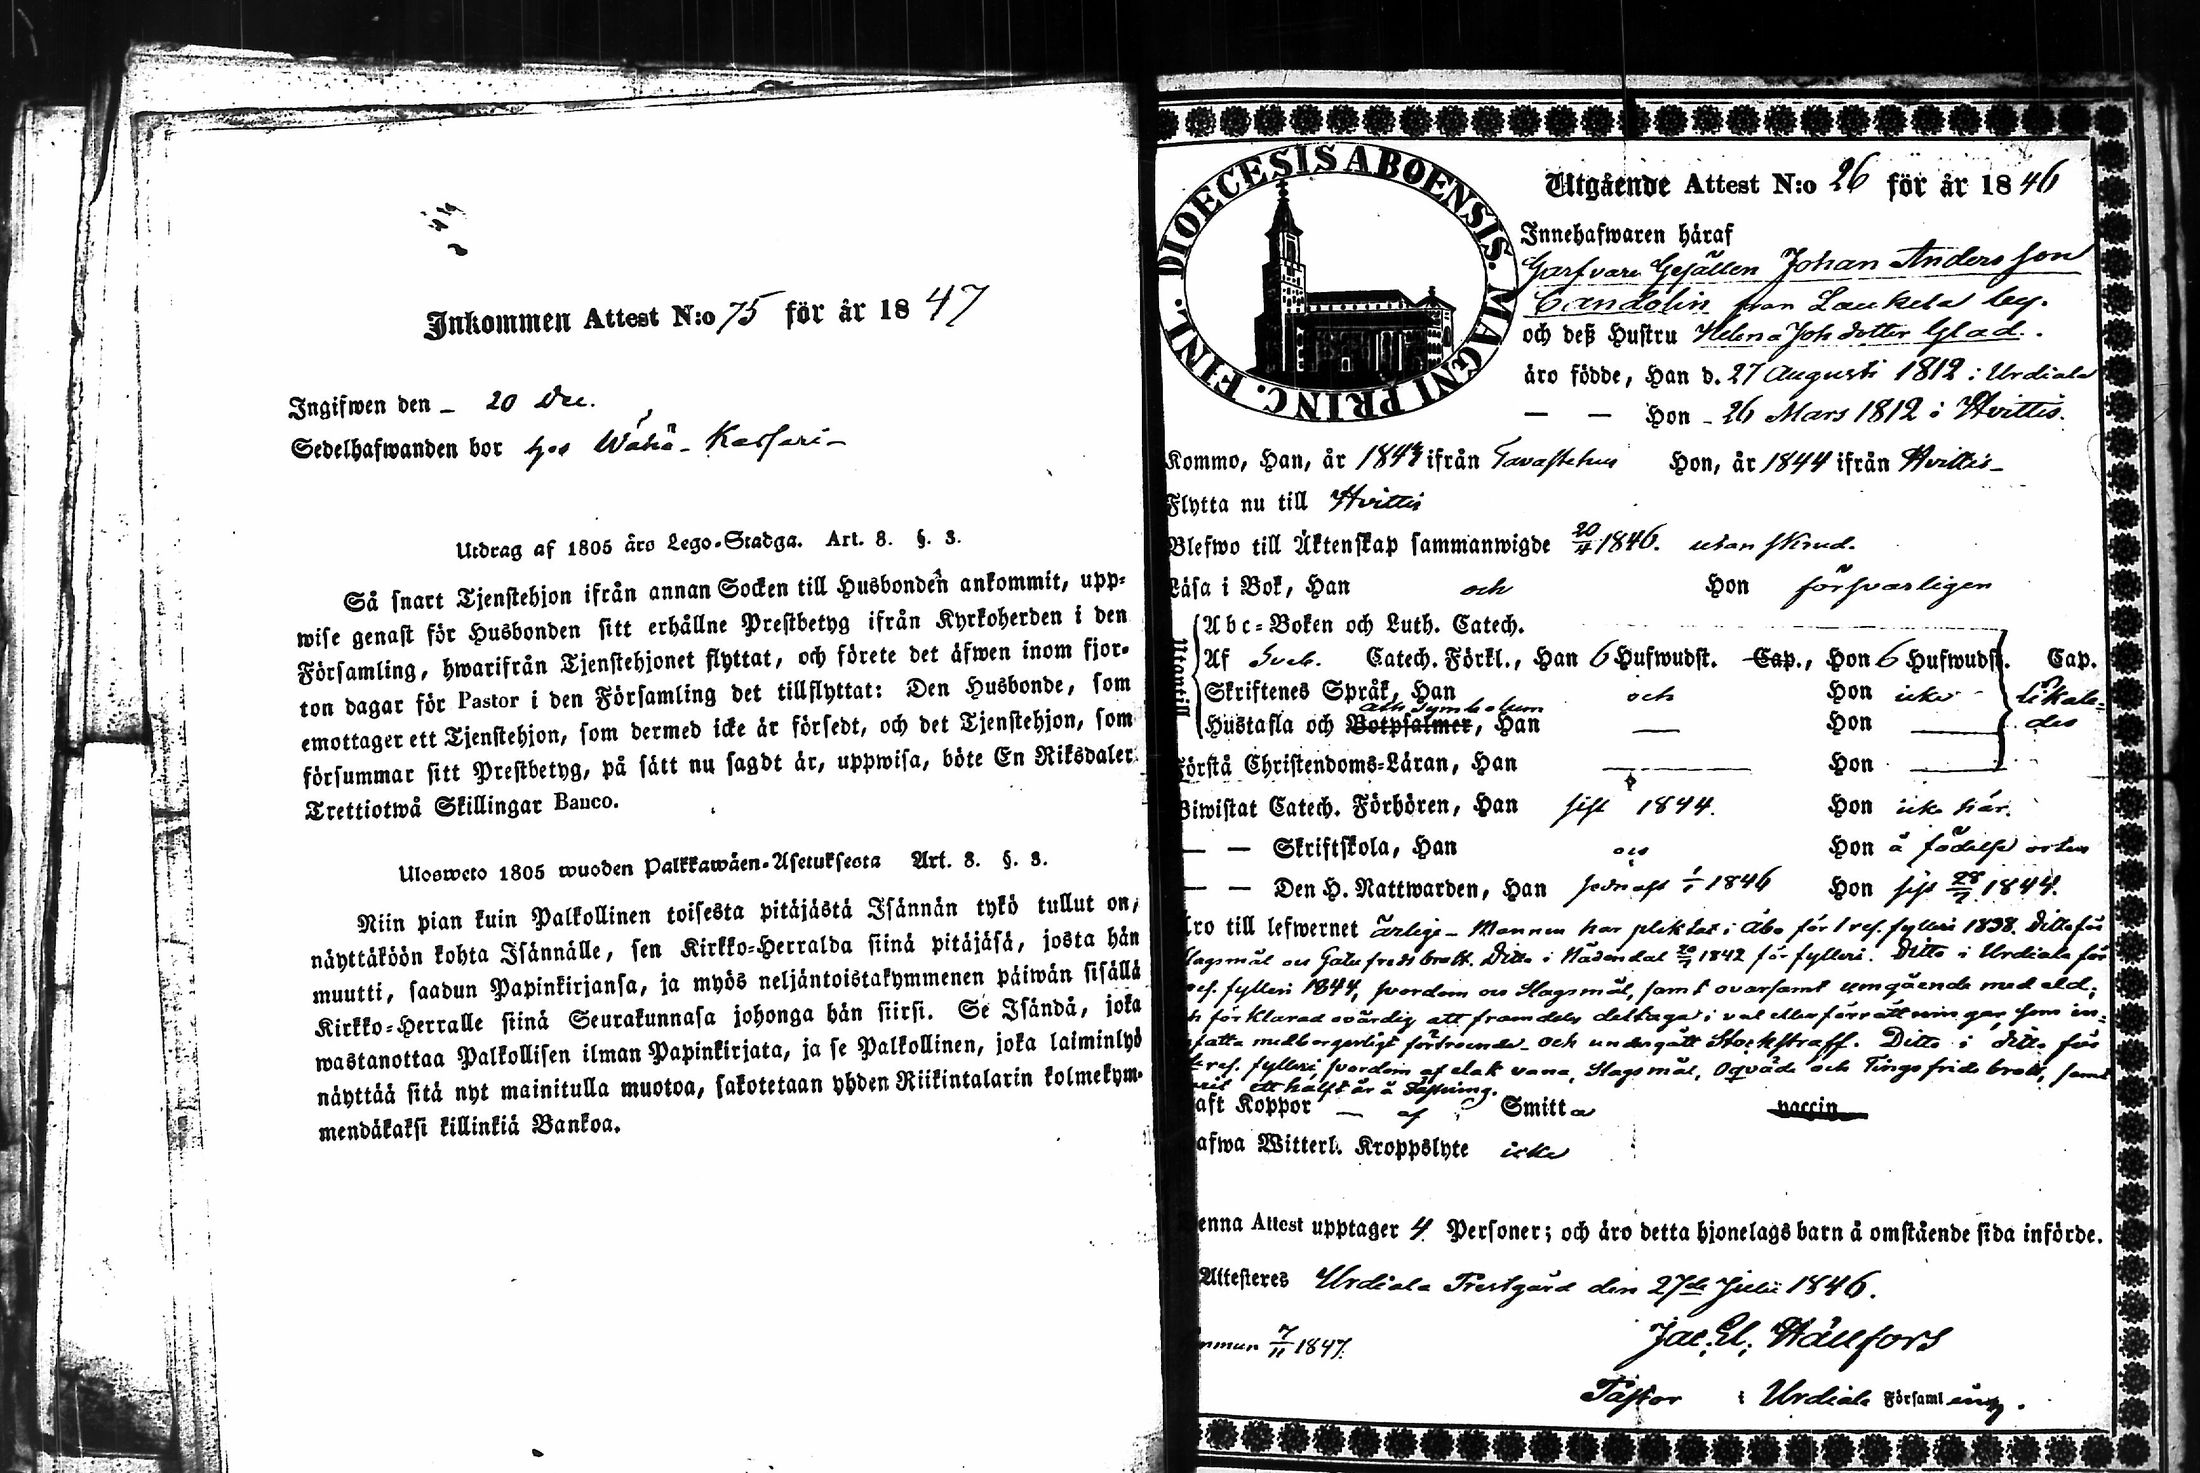 Inkommen Attest N:o 75 för år 1847
Ingifwen den – 20 Dec.
Sedelhafwanden bor hos Wähä-Kassari –
Utdrag af 1805 års Lego-Stadga. Art. 8. §. 3.
Så snart Tjenstehjon ifrån annan Socken till Husbonden ankommit, upp-
wise genast för Husbonden sitt erhållne Prestbetyg ifrån Kyrkoherden i den
Församling, hwarifrån Tjenstehjonet flyttat, och förete det äfwen inom fjor-
ton dagar för Pastor i den Församling det tillflyttat: Den Husbonde, som
emottager ett Tjenstehjon, som dermed icke är försedt, och det Tjenstehjon, som
försummar sitt Prestbetyg, på sätt nu sagdt är, uppwisa, böte En Riksdaler
Trettiotwå Skillingar Banco.
Ulosweto 1805 wuoden Palkkawäen-Asetuksesta Art. 8. §. 3.
Niin pian kuin Palkollinen toisesta pitäjästä Isännän tykö tullut on,
näyttäköön kohta Isännälle, sen Kirkko-Herralda siinä pitäjäsä, josta hän
muutti, saadun Papinkirjansa, ja myös neljäntoistakymmenen päiwän sisällä
Kirkko-Herralle siinä Seurakunnasa johonga hän siirsi. Se Isändä, joka
wastanottaa Palkollisen ilman Papinkirjata, ja se Palkollinen, joka laiminlyö
näyttää sitä nyt mainitulla muotoa, sakotetaan yhden Riikintalarin kolmekym-
mendäkaksi killinkiä Bankoa.
DIOECESIS ABOENSIS. MAGNI PRINC. FINL.
Utgående Attest N:o 26 för år 1846
Innehafwaren häraf
Garfvare Gesällen Johan Andersson
Candolin från Laukela by.
och deß Hustru Helena Johsdotter Glad.
äro födde, Han d. 27 Augusti 1812 i Urdiala
— — Hon – 26 Mars 1812 i Hvittis.
Kommo, Han, år 1844 ifrån Tavastehus Hon, år 1844 ifrån Hvittis –
Flytta nu till Hvittis
Blefwo till Äktenskap sammanwigde 20/4 1846. utan skrud.
Läsa i Bok, Han och Hon försvarligen
Utantill
Abc-Boken och Luth. Catech.
Af Sveb. Catech. Förkl., Han 6 Hufwudst. Cap., Hon 6 Hufwudst. Cap.
Skriftenes Språk, Han och Hon icke Likale-
des
ath. Symbolum
Hustafla och Botpsalmer, Han — Hon —
Förstå Christendoms-Läran, Han — Hon —
Biwistat Catech. Förhören, Han sist 1844. Hon icke här.
— — Skriftskola, Han och Hon å födelse orten
— — Den H. Nattwarden, Han sednast 1/1 1846 Hon sist 1844.
Äro till lefwernet ärlige – Mannen har pliktat i Åbo för 1 res. fylleri 1838. Ditto för
slagsmål och Gatufridsbrott. Ditto i Nådendal 1842 för fylleri. Ditto i Urdiala för
res. fylleri 1844, svordom och Slagsmål, samt ovarsamt umgående med eld;
förklarad ovärdig att framdeles deltaga i val eller förrättningar, som in-
fatta medborgerligt förtroende – och undergått Stockstraff. Ditto i ditto för
res. fylleri, svordom af elak vana, Slagsmål, Oqväde och Tingsfridsbrott, samt
ett halft år å Fästning.
haft Koppor — af Smitta vaccin
Hafwa Witterl. Kroppslyte icke
Denna Attest upptager 4 Personer; och äro detta hjonelags barn å omstående sida införde.
Attesteres Urdiala Prestgård den 27de Julii 1846.
7/11 1847.
Jac. El. Hällfors
Pastor i Urdiala Församling.